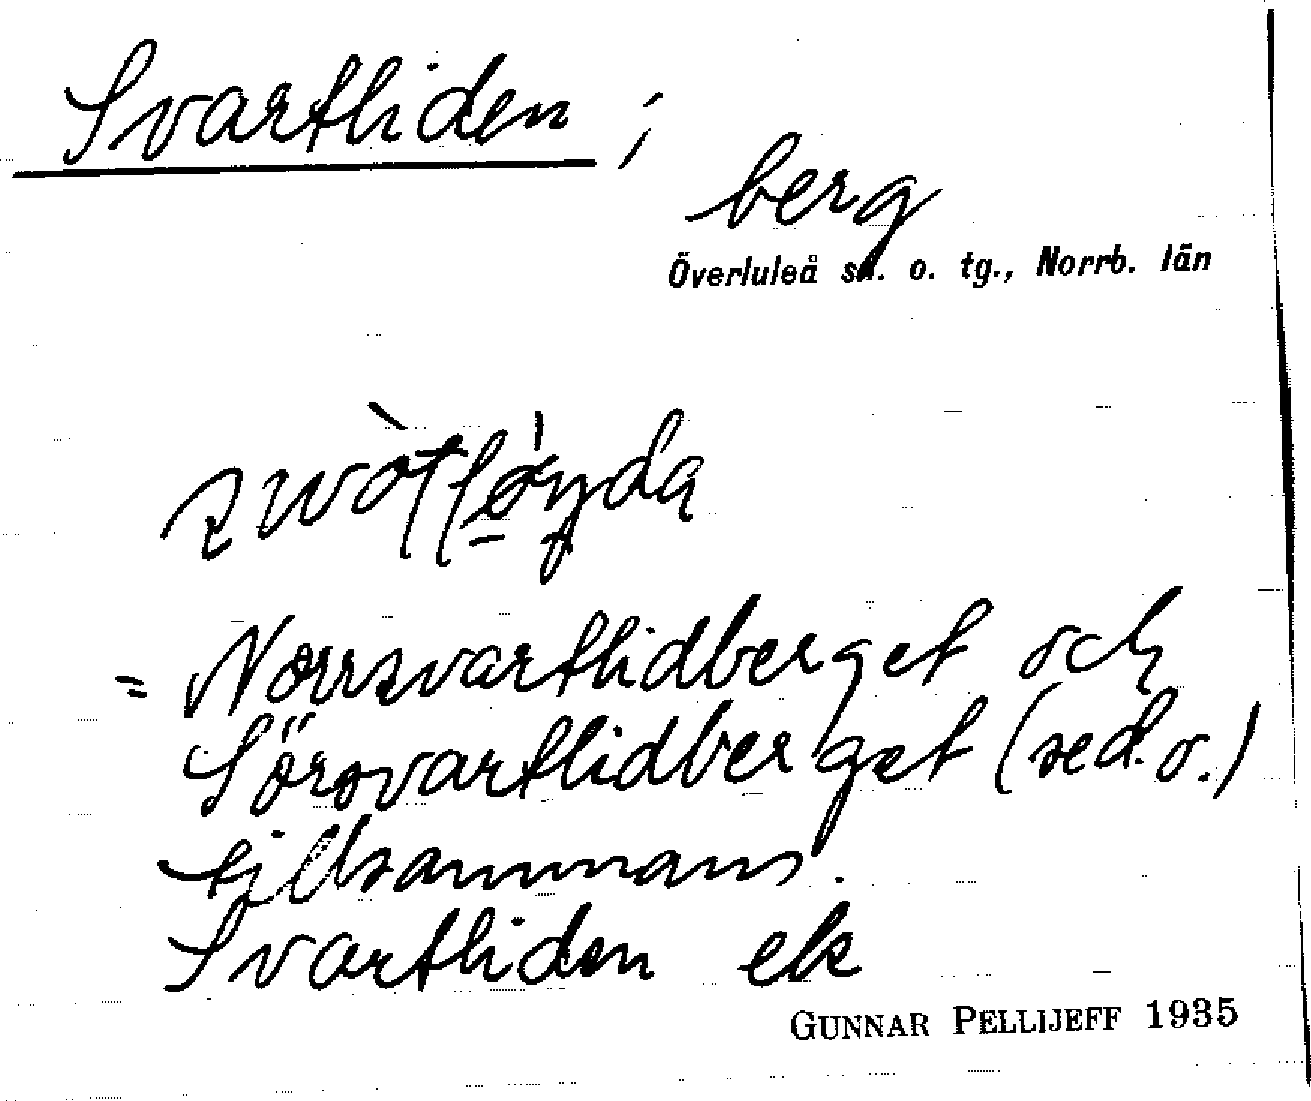 Svartliden ;
berg
Överluleå sn. o. tg., Norrb. län
= Norrsvartlidberget och
Sörsvartlidberget (se d. o.)
tillsammans.
Svartliden ek
GUNNAR PELLIJEFF 1935